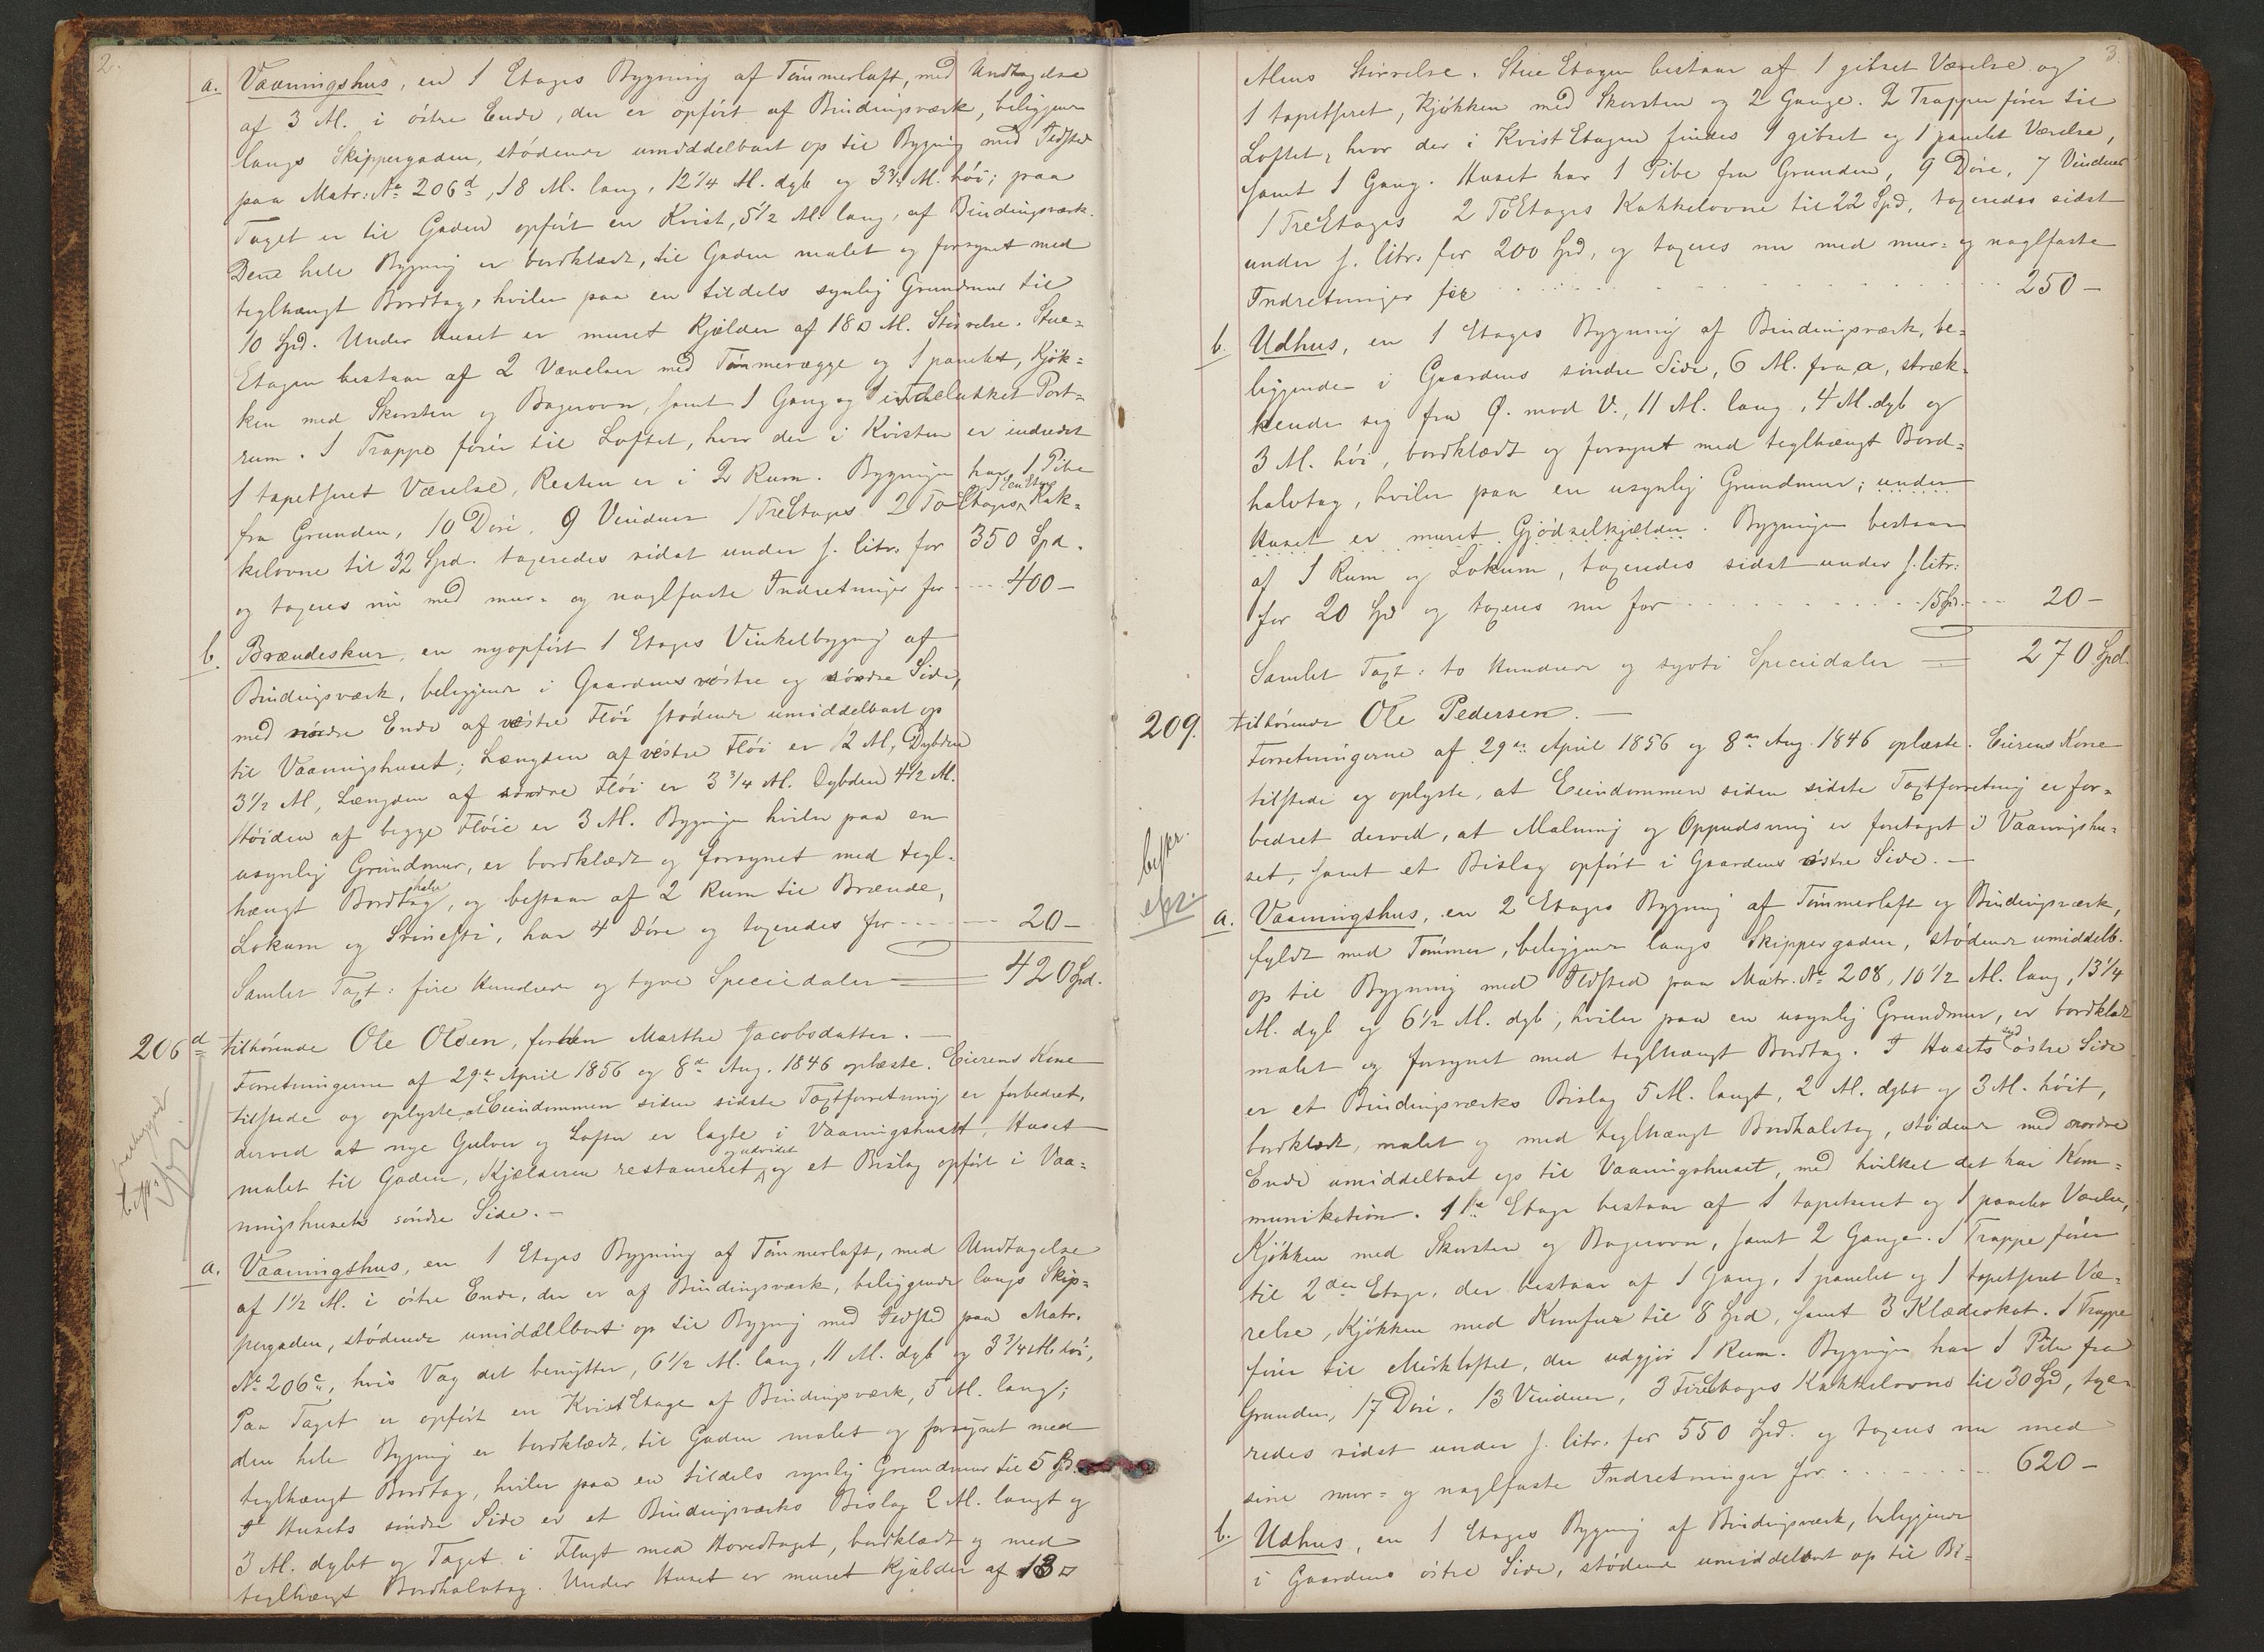 2.
a. Vaaningshus, en 1 Etages Bygning af Tømmerlaft, med Undtagelse
af 3 Al. i østre Ende, der er opført af Bindingsværk, beliggende
langs Skippergaden, stødende umiddelbart op til Bygning med Ildsted
paa Matr: No 206d, 18 Al. lang, 12 1/4 Al. dyb og 3 3/4 Al. høi; paa
Taget er til Gaden opført en Kvist, 5 1/2 Al. lang, af Bindingsværk.
Den hele Bygning er bordklædt, til Gaden malet og forsynet med
teglhængt Bordtag, hviler paa en tildels synlig Grundmur til
10 Spd. Under Huset er muret Kjælder af 18 □ Al. Størrelse. Stue-
Etagen bestaar af 2 Værelser med Tømmervægge og 1 panelet, Kjøk-
ken med Skorsten og Bagerovn, samt 1 Gang og 1 indelukket Port-
rum. 1 Trappe fører til Loftet, hvor der i Kvisten er indredet
1 tapetseret Værelse, Resten er i 2 Rum. Bygningen har 1 Pibe
fra Grunden, 10 Døre, 9 Vinduer 1 TreEtages 2 ToEtages Kak-
kelovne til 32 Spd. taxeredes sidst under s. litr. for 350 Spd.
og taxeres nu med mur- og naglfaste Indretninger for --- 400 -
b. Brændeskur, en nyopført 1 Etages Vinkelbygning af
Bindingsværk, beliggende i Gaardens vestre og søndre Side,
med nordre Ende af vestre Fløi stødende umiddelbart op
til Vaaningshuset; Længden af vestre Fløi er 12 Al, Dybden
3 1/2 Al, Længden af søndre Fløi er 3 3/4 Al. Dybden 4 1/2 Al.
Høiden af begge Fløie er 3 Al. Bygningen hviler paa en
usynlig Grundmur, er bordklædt og forsynet med tegl-
hængt Bordhalvtag, og bestaar af 2 Rum til Brænde,
Lokum og Svinesti, har 4 Døre og taxeredes for --- 20 -
Samlet Taxt: fire Hundrede og tyve Speciedaler = 420 Spd.
206d tilhørende Ole Olsen, forhen Marthe Jacobsdatter. -
Forretningerne af 29de April 1856 og 8de Aug. 1846 oplæste. Eierens Kone
tilstede og oplyste, at Eiendommen siden sidste Taxtforretning er forbedret,
derved at nye Gulver og Lofter er lagte i Vaaningshuset, Huset
malet til Gaden, Kjælderen restaureret og udvidet og et Bislag opført i Vaa-
ningshusets søndre Side. -
a. Vaaningshus, en 1 Etages Bygning af Tømmerlaft, med Undtagelse
af 1 1/2 Al. i østre Ende, der er af Bindingsværk, beliggende langs Skip-
pergaden, stødende umiddelbart op til Bygning med Ildsted paa Matr.
No 206c, hvis Væg det benytter, 6 1/2 Al. lang, 11 Al. dyb og 3 3/4 Al. høi,
Paa Taget er opført en KvistEtage af Bindingsværk, 5 Al. lang;
den hele Bygning er bordklædt, til Gaden malet og forsynet med
teglhængt Bordtag, hviler paa en tildels synlig Grundmur til 5 Spd.
I Husets søndre Side er et Bindingsværks Bislag 2 Al. langt og
3 Al. dybt og Taget i Flugt med Hovedtaget, bordklædt og med
teglhængt Bordhalvtag. Under Huset er muret Kjælder af 13 □
3.
Alens Størrelse. Stue Etagen bestaar af 1 gibset Værelse og
1 tapetseret, Kjøkken med Skorsten og 2 Gange. 2 Trapper fører til
Loftet, hvor der i KvistEtagen findes 1 gibset og 1 panelet Værelse,
samt 1 Gang. Huset har 1 Pibe fra Grunden, 9 Døre, 7 Vinduer
1 TreEtages 2 ToEtages Kakkelovne til 22 Spd, taxeredes sidst
under s. litr. for 200 Spd, og taxeres nu med mur- og naglfaste
Indretninger for ... 250 -
b. Udhus, en 1 Etages Bygning af Bindingsværk, be-
liggende i Gaardens søndre Side, 6 Al. fra a, stræk-
kende sig fra Ø. mod V., 11 Al. lang, 4 Al. dyb og
3 Al. høi, bordklædt og forsynet med teglhængt Bord-
halvtag, hviler paa en usynlig Grundmur; under
Huset er muret Gjødselkjælder. Bygningen bestaar
af 1 Rum og Lokum, taxeredes sidst under s. litr:
for 20 Spd og taxeres nu for ... 15 Spd. ... 20 -
Samlet Taxt: to Hundrede og sytti Speciedaler = 270 Spd.
209. tilhørende Ole Pedersen. -
Forretningerne af 29de April 1856 og 8de Aug. 1846 oplæste. Eierens Kone
tilstede og oplyste, at Eiendommen siden sidste Taxtforretning er for-
bedret derved, at Malning og Oppudsning er foretaget i Vaaningshu-
set, samt et Bislag opført i Gaardens østre Side. -
a. Vaaningshus, en 2 Etages Bygning af Tømmerlaft og Bindingsværk,
fyldt med Tømmer, beliggende langs Skippergaden, stødende umiddelb.
op til Bygning med Ildsted paa Matr. No 208, 10 1/2 Al. lang, 13 1/4
Al. dyb og 6 1/2 Al. dyb, hviler paa en usynlig Grundmur, er bordklædt
malet og forsynet med teglhængt Bordtag. I Husets østre Side
er et Bindingsværks Bislag 5 Al. langt, 2 Al. dybt og 3 Al. høit,
bordklædt, malet og med teglhængt Bordhalvtag, stødende med nordre
Ende umiddelbart op til Vaaningshuset, med hvilket det har Kom-
munikation. 1ste Etage bestaar af 1 tapetseret og 1 panelet Værelse,
Kjøkken med Skorsten og Bagerovn, samt 2 Gange. 1 Trappe fører
til 2den Etage, der bestaar af 1 Gang, 1 panelet og 1 tapetseret Væ-
relse, Kjøkken med Komfur til 8 Spd, samt 3 Klædeskot. 1 Trappe
fører til Mørkloftet, der udgjør 1 Rum. Bygningen har 1 Pibe fra
Grunden, 17 Døre, 13 Vinduer, 3 Kakkelovne til 30 Spd, taxe-
redes sidst under s. litr. for 550 Spd. og taxeres nu med
sine mur- og naglfaste Indretninger for ... 620 -
b. Udhus, en 1 Etages Bygning af Bindingsværk, beliggende
i Gaardens østre Side, stødende umiddelbart op til Bi-